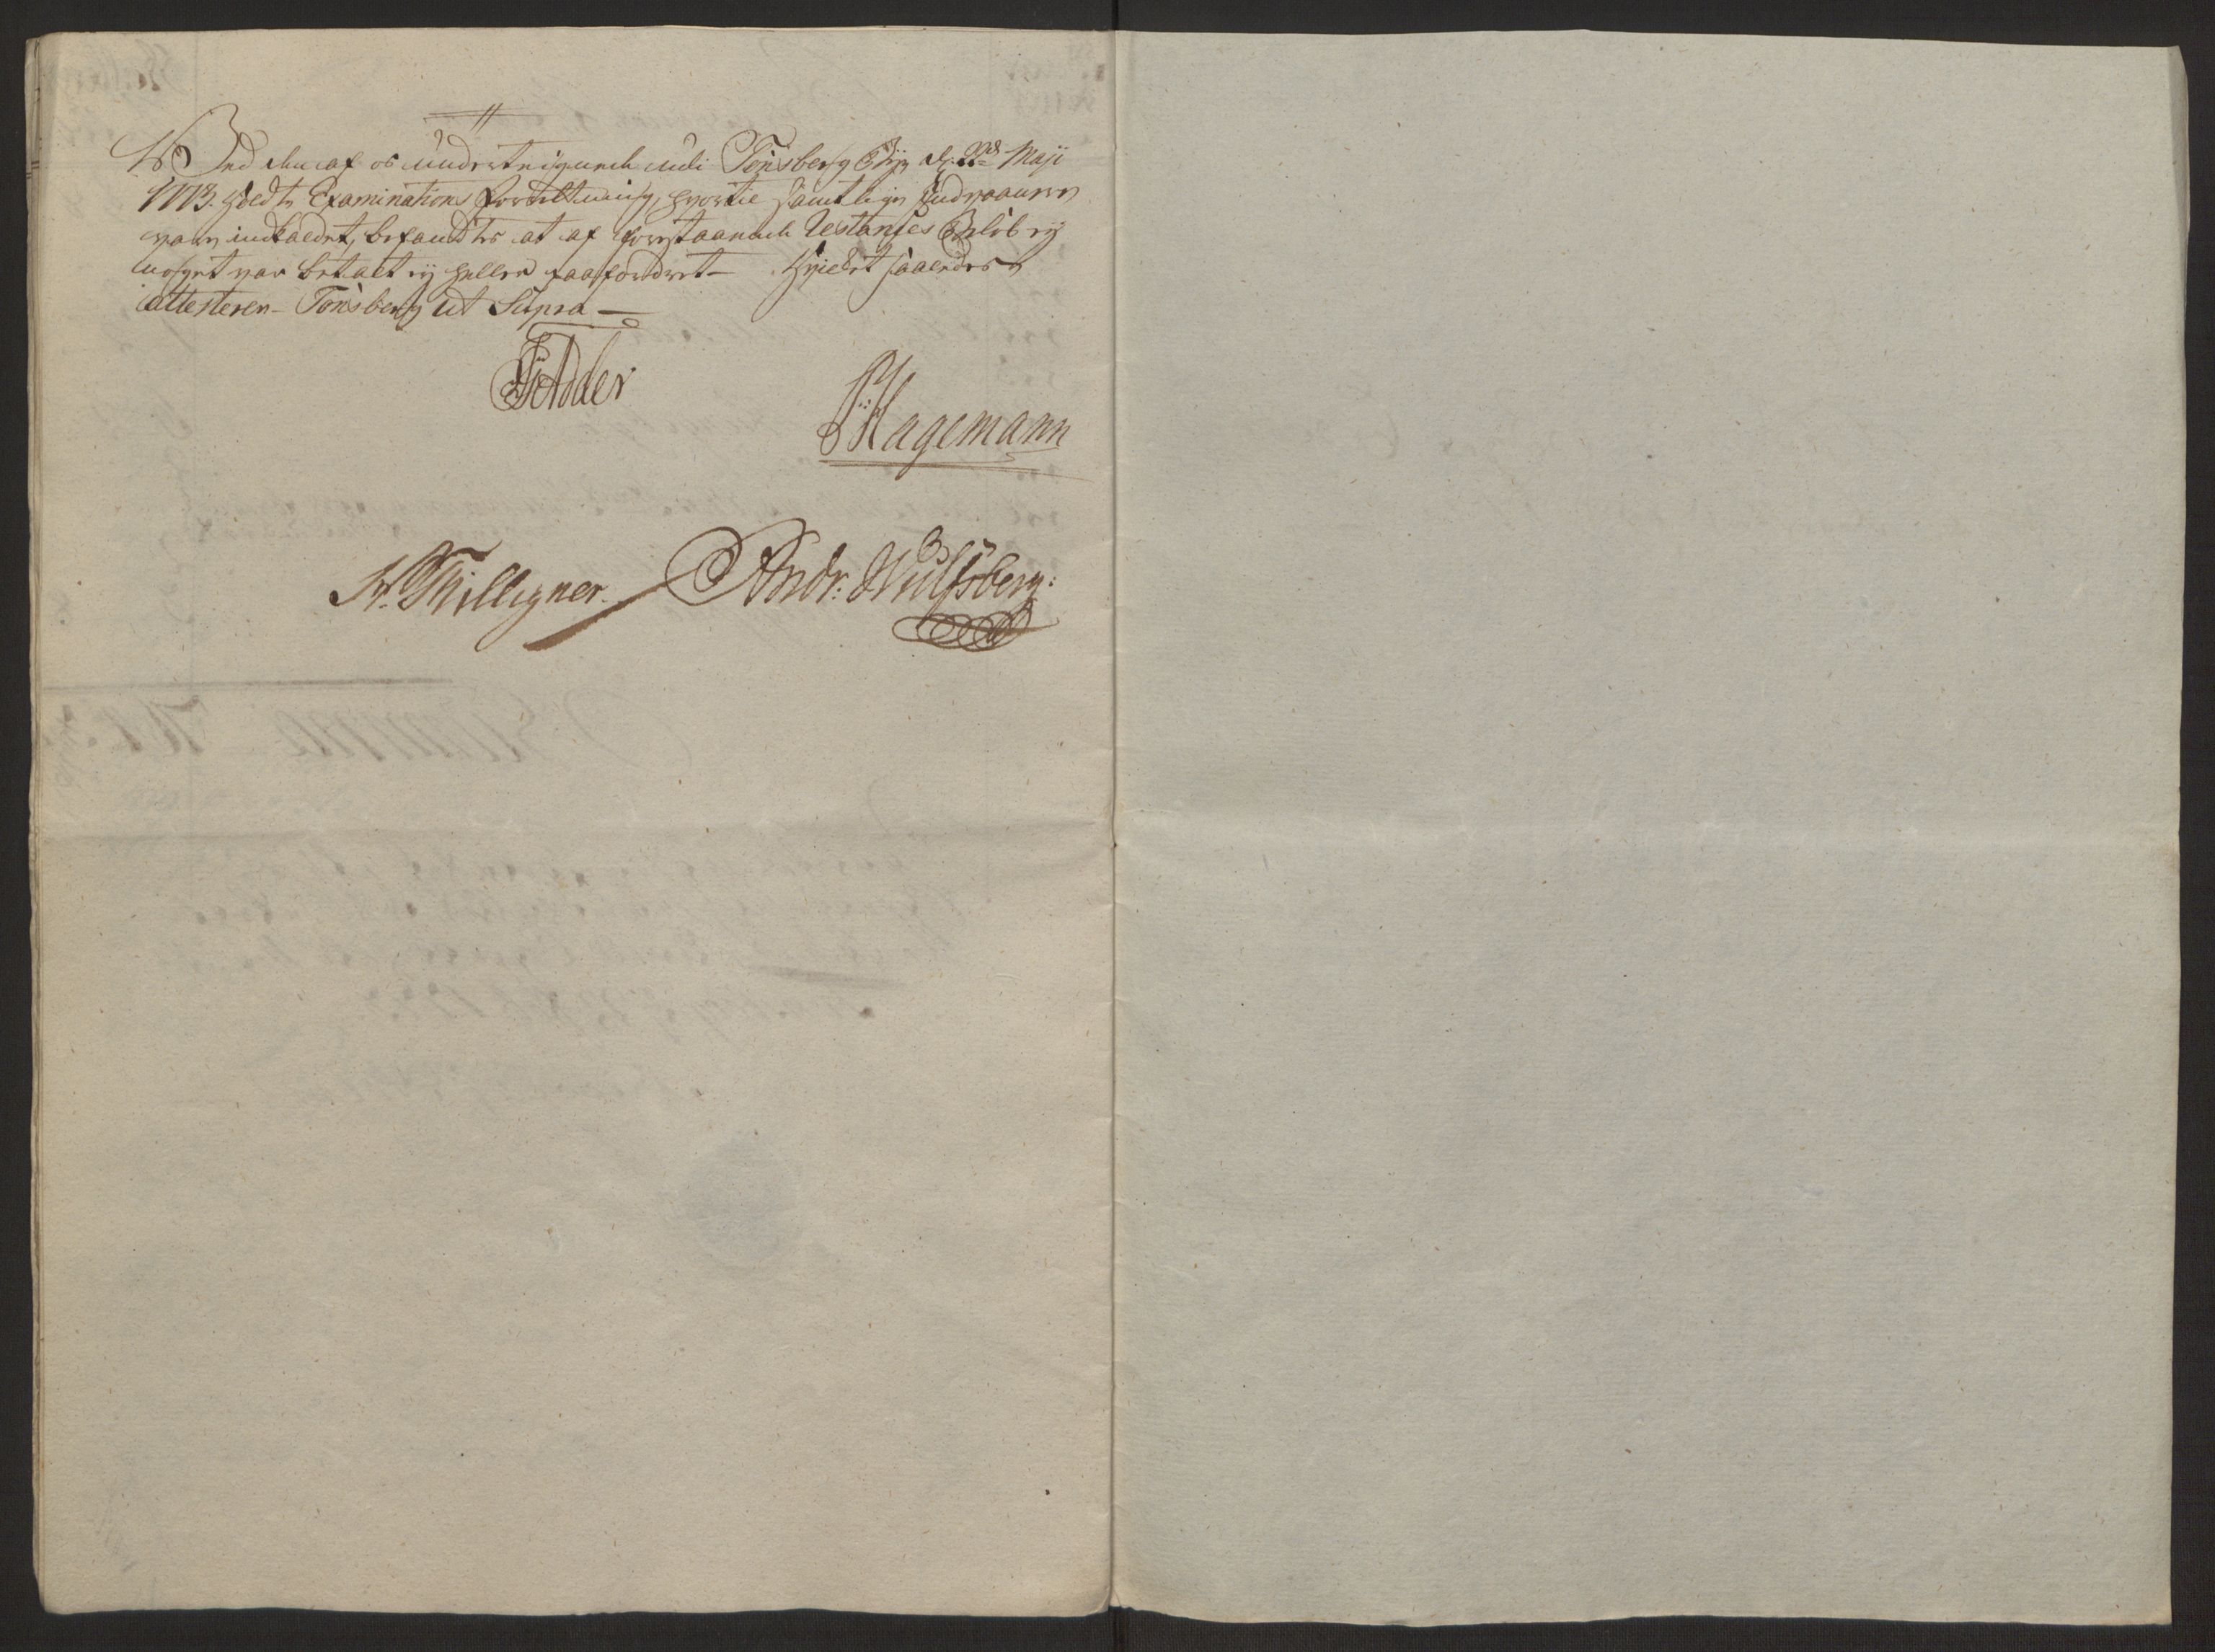 Ved den af os underteignede udi Tönsberg Bye d. 22de Maji
1773. holdte Examinations forretning, hvortil samtlige Indvaanere
vare indkaldet, befandtes at af forestaaende Restances Beløb ej
noget var betalt ej heller paafordret – Hvilket saaledes
attesteres – Tönsberg ut Supra –
Adeler
Hagemann
Andr: Wulfsberg: